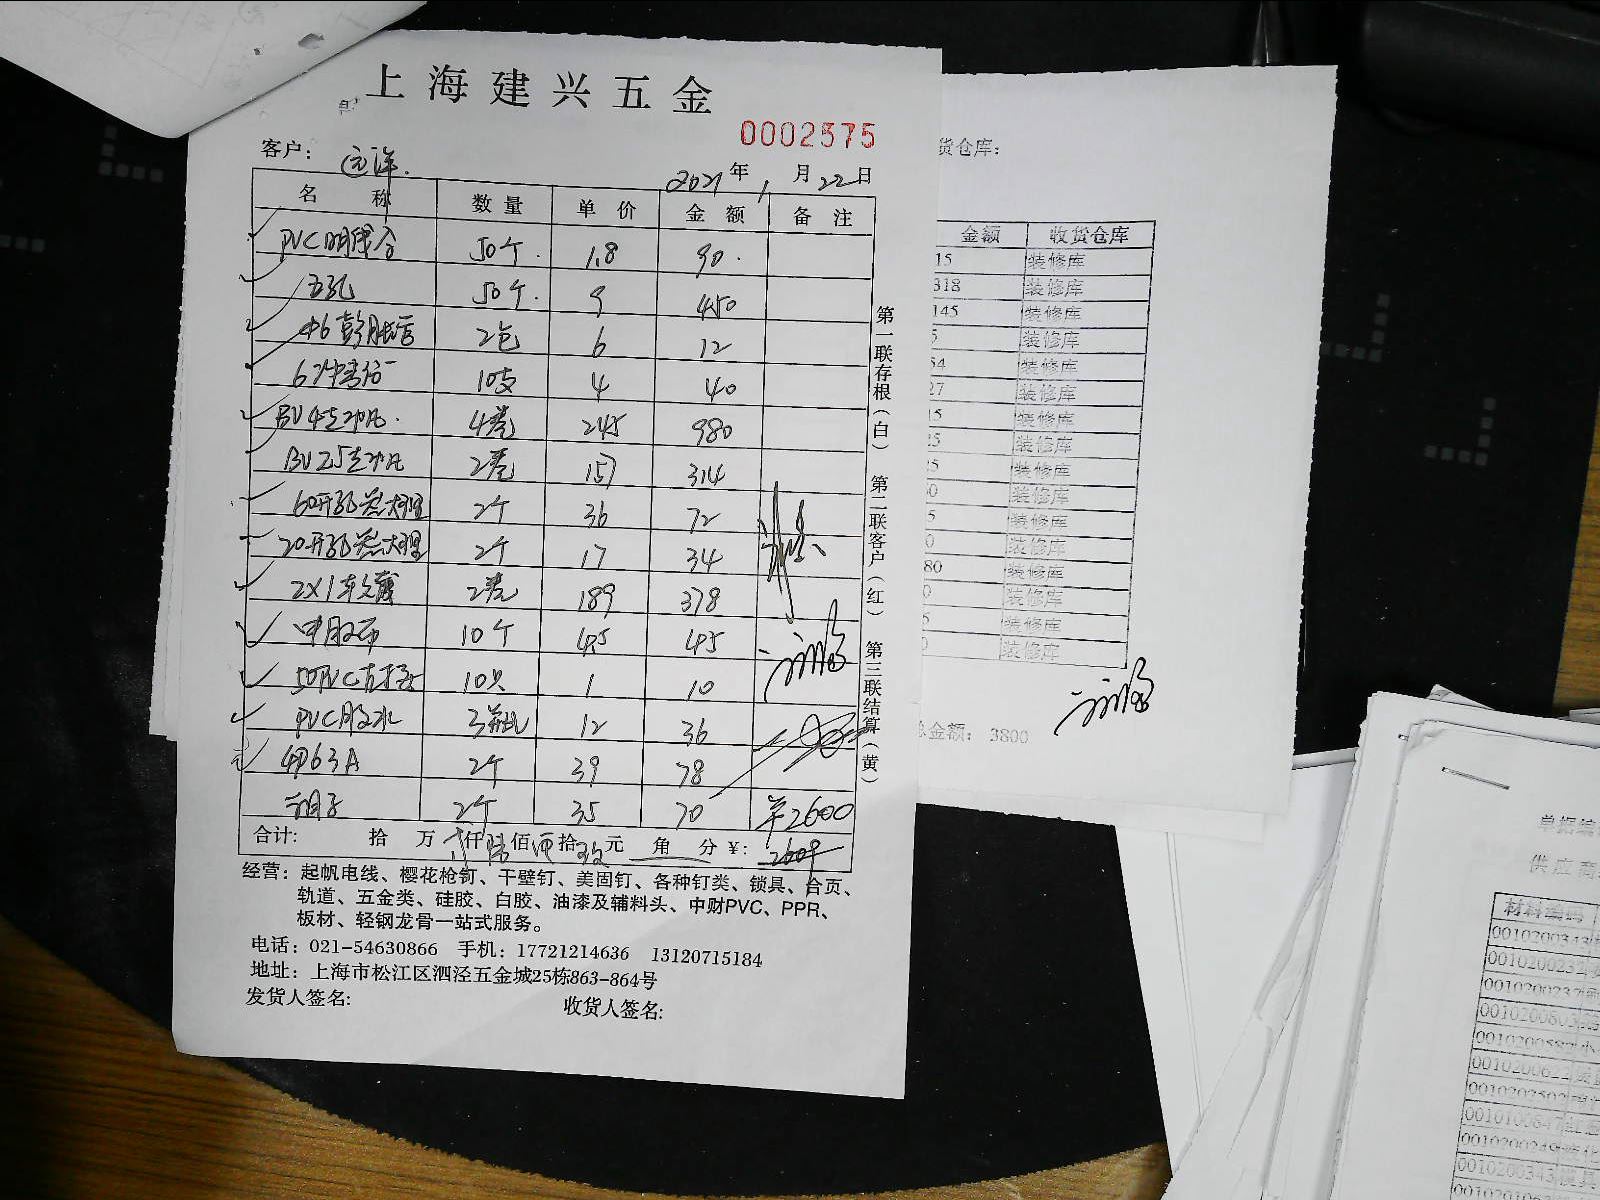 上海建兴五金
0002575
客户： 远洋.
2021年1月22日
名 称 数量 单价 金额 备注
PVC明线合 50个. 1.8 90.
五孔 50个. 9 450
Φ6膨胀管 2包 6 12
6冲击钻 10支 4 40
BV4起帆. 4卷 245 980
BV2.5起帆 2卷 157 314
60开孔 大理 2个 36 72
20开孔 大理 2个 17 34
2X1 2卷 189 378
10个 4.5 45
50PVC直接 10只 1 10
PVC胶水 3瓶 12 36
4P63A 2个 39 78
2个 35 70 ¥2600
合计： 拾 万 仟 陆 佰 拾 元 角 分 ¥： 2609
第一联存根（白） 第二联客户（红） 第三联结算（黄）
经营：起帆电线、樱花枪钉、干壁钉、美固钉、各种钉类、锁具、合页、
轨道、五金类、硅胶、白胶、油漆及辅料头、中财PVC、PPR、
板材、轻钢龙骨一站式服务。
电话：021-54630866 手机：17721214636 13120715184
地址：上海市松江区泗泾五金城25栋863-864号
发货人签名: 收货人签名:
货仓库：
金额 收货仓库
15 装修库
318 装修库
145 装修库
5 装修库
54 装修库
27 装修库
15 装修库
25 装修库
25 装修库
0 装修库
5 装修库
0 装修库
80 装修库
0 装修库
5 装修库
0 装修库
总金额： 3800
单据编
供应商
材料编码
0010200343
0010200232
0010200237
0010200803
0010200582
0010200622
0010202502
0010100647
0010200249
0010200343